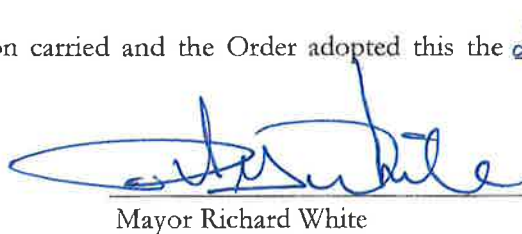 on carried and the Order adopted this the
White
Mayor Richard White